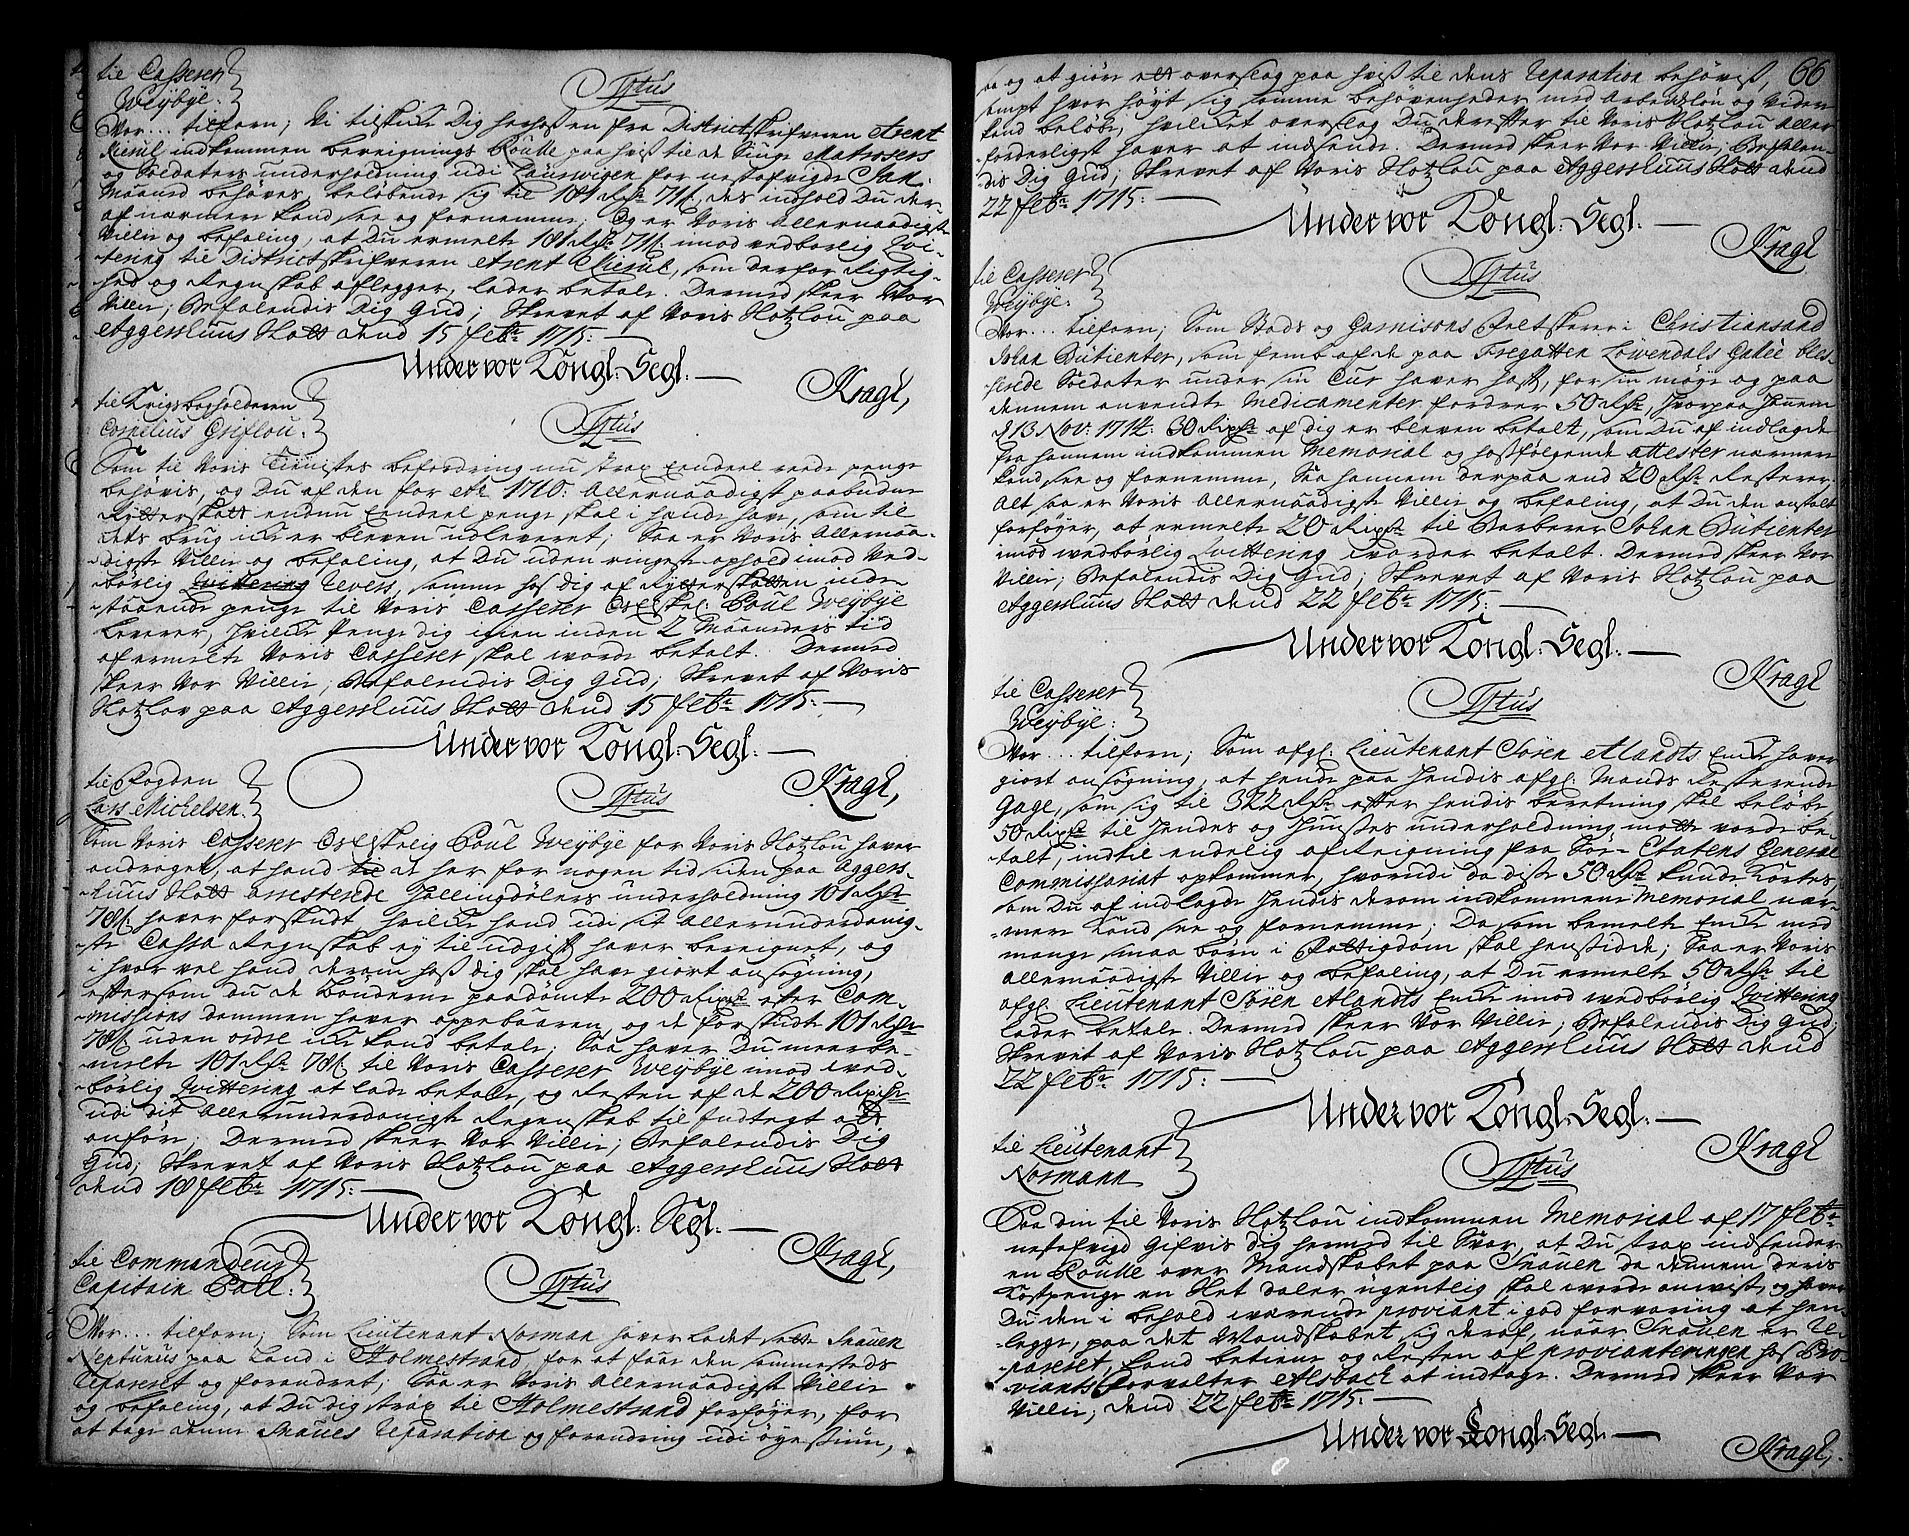 til Casserer
Weybye.
Tÿtus
Vor... tilforn; Vi tilskicke Dig herhossen fra Districtskrifveren Arent
indkommen bereignings Roulle paa hvis til de Siuge Matrosers
og Soldaters underholdning udi Laurwigen for nestafvigte Jan:
Maanet behøves, beløbende sig til 181 Rdr 71 s, des indhold Du der
af nærmere kand see og fornemme; Og er Voris Allernaadigste
Villie og befaling, at Du ermelte 181 Rdr 71 s imod vedbørlig Qvi-
tering til Districtskrifveren Arent, som derfor Rigtig-
hed og Regnskab aflegger, lader betale. Dermed skeer Vor
Villie; Befalendis Dig Gud; Skrevet af Voris Slotzlou paa
Aggershuus Slott dend 15 feb: 1715:
Under vor Kongl: Segl:
Kragh,
til Krigsbogholderen
Cornelius Griflou.
Tÿtus
Som til Voris Tienistes befordring nu strax Eendeel reede penge
behøvis, og Du af den for etc 1710: Allernaadigst paabudne
Rytterskatt endnu Eendeel penge skal i hende have, som til
dets brug icke er bleven udleveret; Saa er Voris Allernaa-
digste Villie og befaling, at Du uden ringeste ophold imod Ved-
børlig Qvittering Revers, samme hos dig af Rytterskatten inde-
staaende penge til Voris Casserer Poul Weybye
Leverer, hvilcke Penge dig igien inden 2 Maaneders tid
af ermelte Voris Casserer skal worde betalt. Dermed
skeer Vor Villie; Befalendis Dig Gud; Skrevet af Voris
Slotzlov paa Aggershuus Slott dend 15 feb: 1715:
Under vor Kongl: Segl:
Kragh,
til Fogden
Lars Michelsen.
Tÿtus
Som Voris Casserer Poul Weybye for Voris Slotzlou haver
andraget, at hand til de her for nogen tid siden paa Aggers-
huus Slott arresterede Hallingdølers underholdning 101 Rdr
78 s haver forskudt hvilcke hand udi sit Allerunderdanig-
ste Cassa Regnskab ey til udgift haver bereignet, og
i hvor vel hand derom hoss dig skal have giort ansøgning,
eftersom du de Bønderne paadømte 200 Rixdr efter Com-
missions dommen haver oppebaaren, og de forskudte 101 Rdr
78 s uden ordre icke kand betale; Saa haver Du meerbe-
melte 101 Rdr 78 s til Voris Casserer Weybye imod ved-
børlig Qvittering at lade betale, og Resten af de 200 Rixdr
udi dit Allerunderdanigste Regenskab til Indtegt att
anføre; Dermed skeer Vor Villie; Befalendis Dig
Gud; Skrevet af Voris Slotzlou paa Aggershuus Slott
dend 18 feb: 1715:
Under vor Kongl: Segl:
Kragh,
til Commandeur
Capitain Pall:
Tÿtus
Vor... tilforn; Som Lieutenant Norman haver ladet sette Snauen
Neptunus paa Land i Holmestrand, for at faae den sammesteds
Repareret og forandret; Saa er Voris Allernaadigste Villie
og befaling, at Du dig strax til Holmestrand forføyer, for
at tage denne Snaues Reparation og forandring udi øyesiun,
66
saa og at giøre ett overslag paa hvis til dens Reparation behøves,
sampt hvor høyt sig samme behøvenheder med Arbeidzløn og Videre
kand beløbe, hvilcket overslag Du derefter til Voris Slotzlou Aller
forderligst haver at indsende. Dermed skeer Vor Villie, Befalen-
dis Dig Gud; Skrevet af Voris Slotzlou paa Aggershuus Slott dend
22 feb: 1715:
Under vor Kongl: Segl:
Kragh
til Casserer
Weybye:
Tÿtus
Vor... tilforn; Som Stads og Garnisons Feltskerer i Christiansand
Johan Butienter, som femb af de paa Fregatten Løwendals Galée bles-
serede Soldater under sin Cur haver haft, for sin møye og paa
dennem anvendte Medicamenter fordrer 50 Rdr, hvorpaa hannem
d 13 Nov: 1714: 30 Rixdr af dig er bleven betalt, som Du af indlagde
fra hannem indkommen Memorial og hosfølgende attester nærmere
kand see og fornemme, Saa hannem derpaa end 20 Rdr Resterer.
Alt saa er Voris Allernaadigste Villie og befaling, at Du den anstalt
forføyer, at ermelte 20 Rixdr til Barberer Johan Butienter
imod vedbørlig Qvittering vorder betalt. Dermed skeer Vor
Villie; Befalendis Dig Gud; Skrevet af Voris Slotzlou paa
Aggershuus Slott dend 22 feb: 1715:
Under vor Kongl: Segl:
Kragh
til Casserer
Weybye:
Tÿtus
Vor... tilforn; Som afgl: Lieutenant Søren Alandts Encke haver
giort ansøgning, at hende paa hendis afgl: Mands Resterende
Gage, som sig til 322 Rdr efter hendis beretning skal beløbe
50 Rixdr til hendes og hunses underholdning motte vorde be-
talt, indtil endelig afreigning fra Søe-Etatens General
Commissariat opkommer, hvorudi da disse 50 Rdr kunde kortes,
som Du af indlagde hendis derom indkommene Memorial nær-
mere kand see og fornemme; Da som bemelte Encke med
mange smaa børn i Fattigdom skal hensidde; Saa er Voris
allernaadigste Villie og befaling, at Du ermelte 50 Rdr til
afgl: Lieutenant Søren Alandts Encke imod vedbørlig Qvittering
lader betale. Dermed skeer Vor Villie; Befalendis Dig Gud;
Skrevet af Voris Slotzlou paa Aggershuus Slott dend
22 feb: 1715:
Under vor Kongl: Segl:
Kragh
til Lieutenant
Normann
Tÿtus
Paa din til Voris Slotzlou indkommen Memorial af 17 feb:
nestafvigt Gifvis dig hermed til Svar, at Du strax indsender
en Roulle over Mandskabet paa Snauen da dennem deris
Kostpenge en Slet daler ugentlig skal worde anvist, og haver
Du den i behold værende proviant i god forvaring at hen-
legge, paa det Mandskabet sig deraf, naar Snauen er Re-
pareret, kand betiene og Resten af provianteringen hos Pro-
viants Forvalter Alsback at indtage. Dermed skeer Vor
Villie; dend 22 feb: 1715:
Under vor Kongl: Segl:
Kragh,